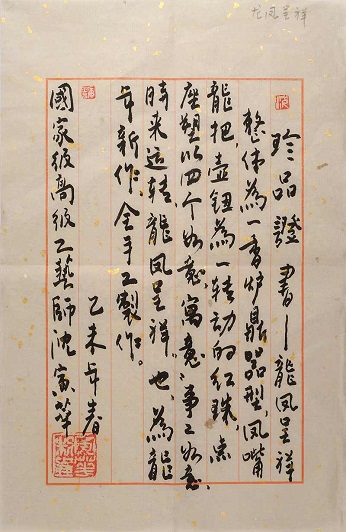 龙凤呈祥
珍品證書—龍凤呈祥
整体為一香炉鼎器型,凤嘴
龍把,壶钮為一转动的红珠,底
座塑以四个如意,寓意“事々如意、
時来运转、龍凤呈祥”也,為龍
年新作。全手工製作。
乙未年春
國家级高级工藝師沈寅華